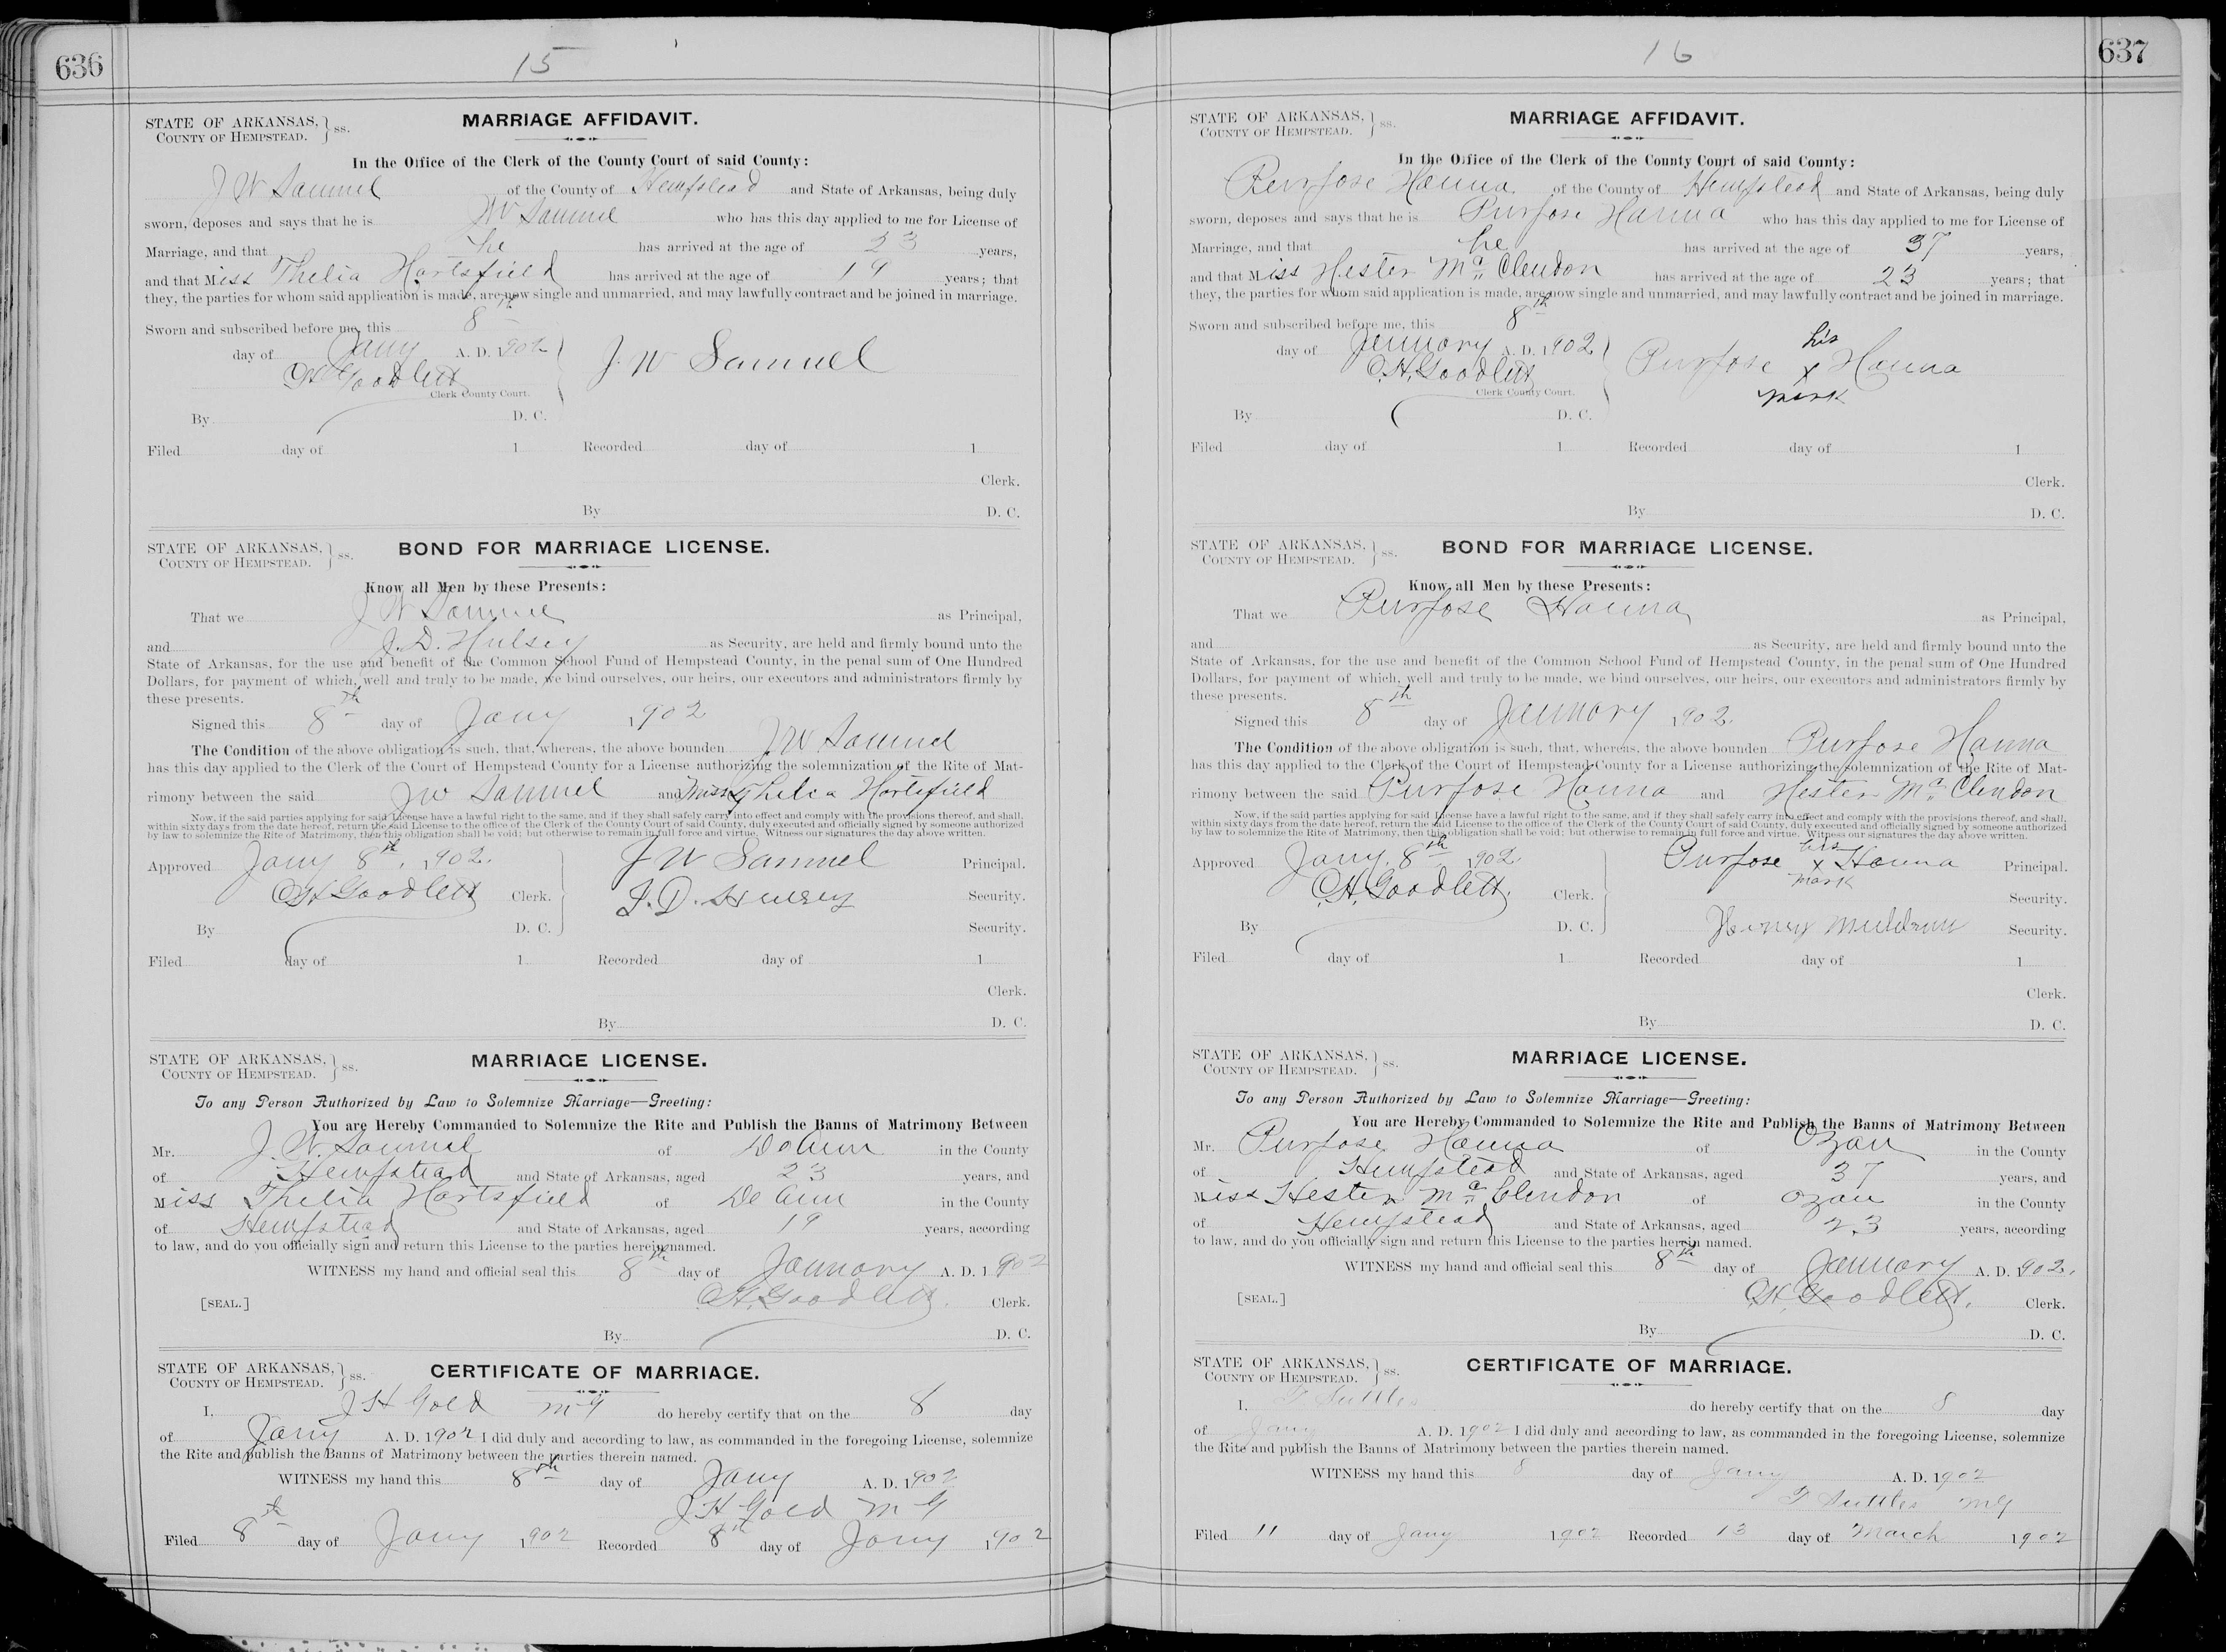 636
15
STATE OF ARKANSAS, } ss.
COUNTY OF HEMPSTEAD.
MARRIAGE AFFIDAVIT.
In the Office of the Clerk of the County Court of said County:
J W Samuel of the County of Hempstead and State of Arkansas, being duly
sworn, deposes and says that he is JW Samuel who has this day applied to me for License of
Marriage, and that he has arrived at the age of 23 years,
and that Miss Thelia Hartsfield has arrived at the age of 19 years; that
they, the parties for whom said application is made, are now single and unmarried, and may lawfully contract and be joined in marriage.
Sworn and subscribed before me, this 8th
day of Jany A. D. 1902 } J. W Samuel
CH Goodlett
Clerk County Court.
By D. C.
Filed day of 1 Recorded day of 1
Clerk.
By D. C.
STATE OF ARKANSAS, } ss.
COUNTY OF HEMPSTEAD.
BOND FOR MARRIAGE LICENSE.
Know all Men by these Presents:
That we J W Samuel as Principal,
and J. D. Hulsey as Security, are held and firmly bound unto the
State of Arkansas, for the use and benefit of the Common School Fund of Hempstead County, in the penal sum of One Hundred
Dollars, for payment of which, well and truly to be made, we bind ourselves, our heirs, our executors and administrators firmly by
these presents.
Signed this 8th day of Jany 1902
The Condition of the above obligation is such, that, whereas, the above bounden JW Samuel
has this day applied to the Clerk of the Court of Hempstead County for a License authorizing the solemnization of the Rite of Mat-
rimony between the said JW Samuel and Miss Thelia Hartsfield
Now, if the said parties applying for said License have a lawful right to the same, and if they shall safely carry into effect and comply with the provisions thereof, and shall,
within sixty days from the date hereof, return the said License to the office of the Clerk of the County Court of said County, duly executed and officially signed by someone authorized
by law to solemnize the Rite of Matrimony, then this obligation shall be void; but otherwise to remain in full force and virtue. Witness our signatures the day above written.
Approved Jany 8th, 1902. } J W Samuel Principal.
CH Goodlett Clerk. J. D. Hulsey Security.
By D. C. Security.
Filed day of 1 Recorded day of 1
Clerk.
By D. C.
STATE OF ARKANSAS, } ss.
COUNTY OF HEMPSTEAD.
MARRIAGE LICENSE.
To any Person Authorized by Law to Solemnize Marriage—Greeting:
You are Hereby Commanded to Solemnize the Rite and Publish the Banns of Matrimony Between
Mr. J. W. Samuel of De Ann in the County
of Hempstead and State of Arkansas, aged 23 years, and
Miss Thelia Hartsfield of De Ann in the County
of Hempstead and State of Arkansas, aged 19 years, according
to law, and do you officially sign and return this License to the parties herein named.
WITNESS my hand and official seal this 8th day of January A. D. 1902
[SEAL.] CH. Goodlett. Clerk.
By D. C.
STATE OF ARKANSAS, } ss.
COUNTY OF HEMPSTEAD.
CERTIFICATE OF MARRIAGE.
I, J H Gold M G do hereby certify that on the 8 day
of Jany A. D. 1902 I did duly and according to law, as commanded in the foregoing License, solemnize
the Rite and publish the Banns of Matrimony between the parties therein named.
WITNESS my hand this 8th day of Jany A. D. 1902
J H Gold M G
Filed 8th day of Jany 1902 Recorded 8th day of Jany 1902
637
16
STATE OF ARKANSAS, } ss.
COUNTY OF HEMPSTEAD.
MARRIAGE AFFIDAVIT.
In the Office of the Clerk of the County Court of said County:
Purfose Hanna of the County of Hempstead and State of Arkansas, being duly
sworn, deposes and says that he is Purfose Hanna who has this day applied to me for License of
Marriage, and that he has arrived at the age of 37 years,
and that Miss Hester McClendon has arrived at the age of 23 years; that
they, the parties for whom said application is made, are now single and unmarried, and may lawfully contract and be joined in marriage.
Sworn and subscribed before me, this 8th his
day of January A. D. 1902 } Purfose x Hanna
C.H. Goodlett mark
Clerk County Court.
By D. C.
Filed day of 1 Recorded day of 1
Clerk.
By D. C.
STATE OF ARKANSAS, } ss.
COUNTY OF HEMPSTEAD.
BOND FOR MARRIAGE LICENSE.
Know all Men by these Presents:
That we Purfose Hanna as Principal,
and as Security, are held and firmly bound unto the
State of Arkansas, for the use and benefit of the Common School Fund of Hempstead County, in the penal sum of One Hundred
Dollars, for payment of which, well and truly to be made, we bind ourselves, our heirs, our executors and administrators firmly by
these presents.
Signed this 8th day of January 1902.
The Condition of the above obligation is such, that, whereas, the above bounden Purfose Hanna
has this day applied to the Clerk of the Court of Hempstead County for a License authorizing the solemnization of the Rite of Mat-
rimony between the said Purfose Hanna and Hester McClendon
Now, if the said parties applying for said License have a lawful right to the same, and if they shall safely carry into effect and comply with the provisions thereof, and shall,
within sixty days from the date hereof, return the said License to the office of the Clerk of the County Court of said County, duly executed and officially signed by someone authorized
by law to solemnize the Rite of Matrimony, then this obligation shall be void; but otherwise to remain in full force and virtue. Witness our signatures the day above written.
his
Approved Jany. 8th 1902 } Purfose x Hanna Principal.
mark
C.H. Goodlett. Clerk. Security.
By D. C. Henry Muldrow Security.
Filed day of 1 Recorded day of 1
Clerk.
By D. C.
STATE OF ARKANSAS, } ss.
COUNTY OF HEMPSTEAD.
MARRIAGE LICENSE.
To any Person Authorized by Law to Solemnize Marriage—Greeting:
You are Hereby Commanded to Solemnize the Rite and Publish the Banns of Matrimony Between
Mr. Purfose Hanna of Ozan in the County
of Hempstead and State of Arkansas, aged 37 years, and
Miss Hester McClendon of Ozan in the County
of Hempstead and State of Arkansas, aged 23 years, according
to law, and do you officially sign and return this License to the parties herein named.
WITNESS my hand and official seal this 8th day of January A. D. 1902.
[SEAL.] CH. Goodlett. Clerk.
By D. C.
STATE OF ARKANSAS, } ss.
COUNTY OF HEMPSTEAD.
CERTIFICATE OF MARRIAGE.
I, F Suttles do hereby certify that on the 8 day
of Jany A. D. 1902 I did duly and according to law, as commanded in the foregoing License, solemnize
the Rite and publish the Banns of Matrimony between the parties therein named.
WITNESS my hand this 8 day of Jany A. D. 1902
F Suttles MG
Filed 11 day of Jany 1902 Recorded 13 day of March 1902